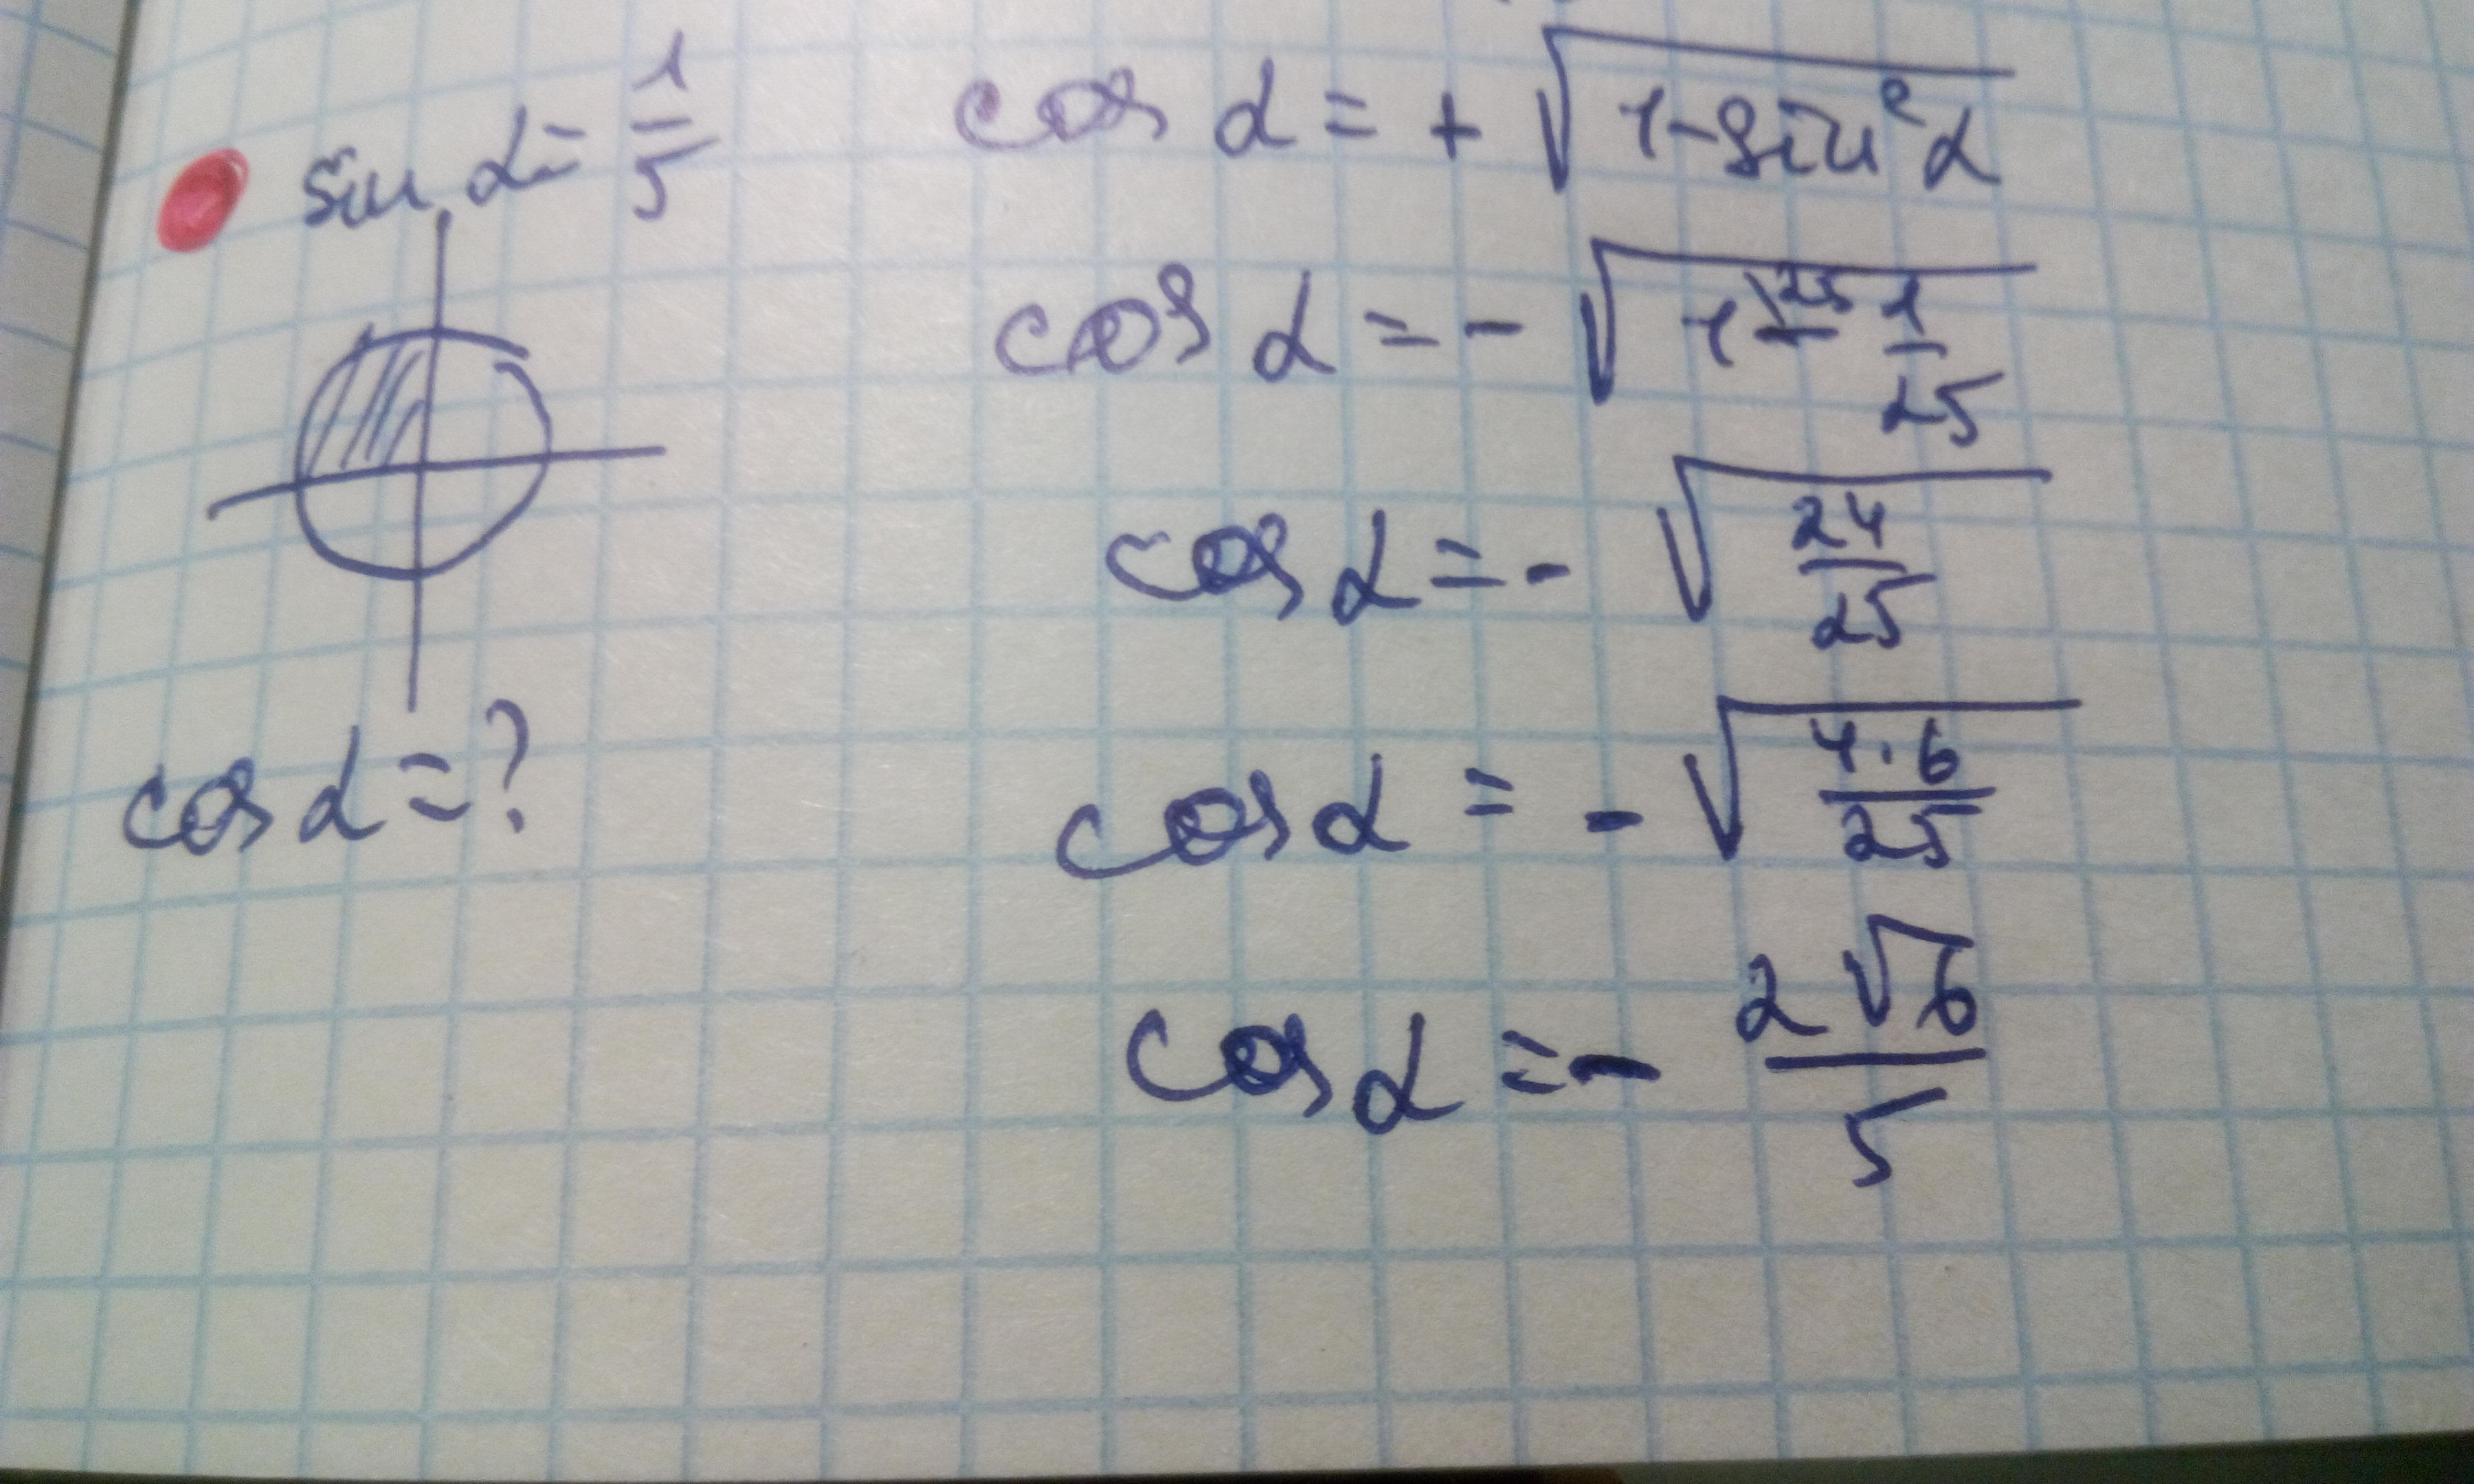 sin α = 1/5
cos α = ?
cos α = + √(1 - sin²α)
cos α = - √(1\25 - 1/25)
cos α = - √(24/25)
cos α = - √(4·6/25)
cos α = - 2√6/5